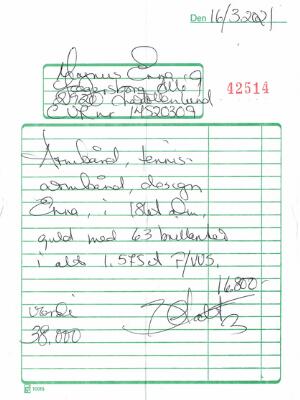 Den 16/3.2021
Magnus Enna
42514
2920 Charlottenlund
CVR nr 14520309
Armbånd, tennis-
armbånd, design
Enna, i 18kt
guld med 63 brillanter
i alt 1.57ct F/VVS.
16.800-
værdi
38.000